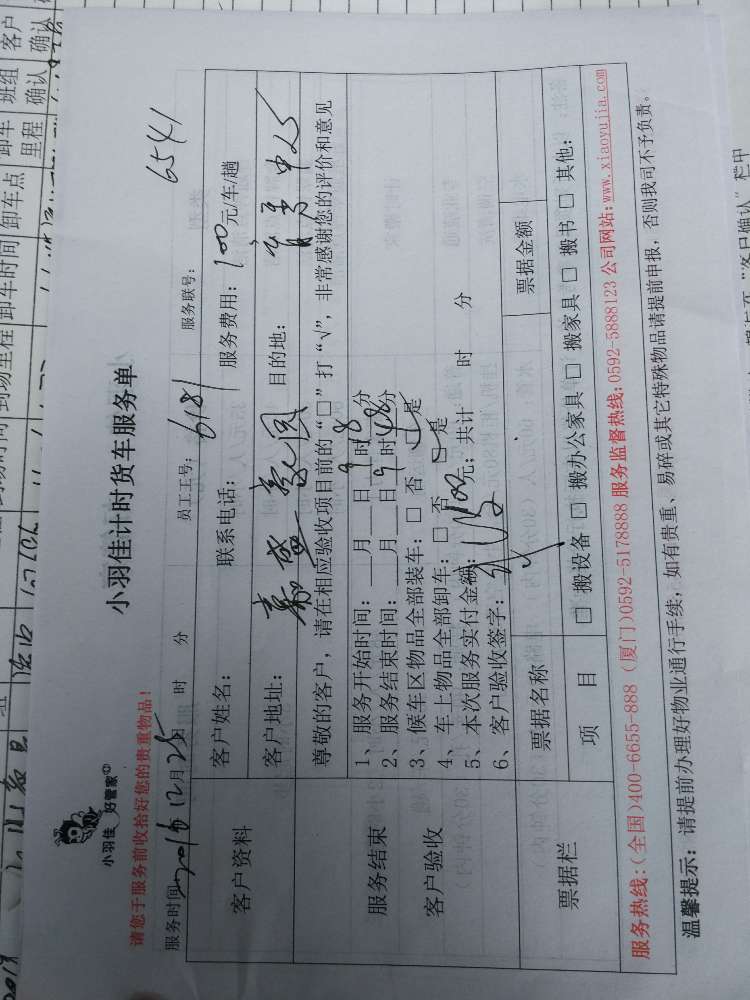 小羽佳 好管家
小羽佳计时货车服务单
请您于服务前收拾好您的贵重物品！
服务时间 2016 12月25 时 分 员工工号： 6181 服务联号： 6541
客户资料
客户姓名： 联系电话： 服务费用：100元/车/趟
客户地址： 嘉盛豪园 目的地：
尊敬的客户，请在相应验收项目前的“□”打“√”，非常感谢您的评价和意见
服务结束
客户验收
1、服务开始时间：__月__日9时8分
2、服务结束时间：__月__日9时48分
3、候车区物品全部装车：□ 否 □是
4、车上物品全部卸车：□ 否 □是
5、本次服务实付金额：100元；共计 时 分
6、客户验收签字：
票据栏
票据名称 票据金额
项 目 □ 搬设备 □ 搬办公家具 □ 搬家具 □ 搬书 □ 其他：
服务热线:(全国)400-6655-888 (厦门)0592-5178888 服务监督热线:0592-5888123 公司网站:www.xiaoyujia.com
温馨提示：请提前办理好物业通行手续，如有贵重、易碎或其它特殊物品请提前申报，否则我司不予负责。
到场里程 卸车时间 卸车点 卸车里程 班组确认 客户确认